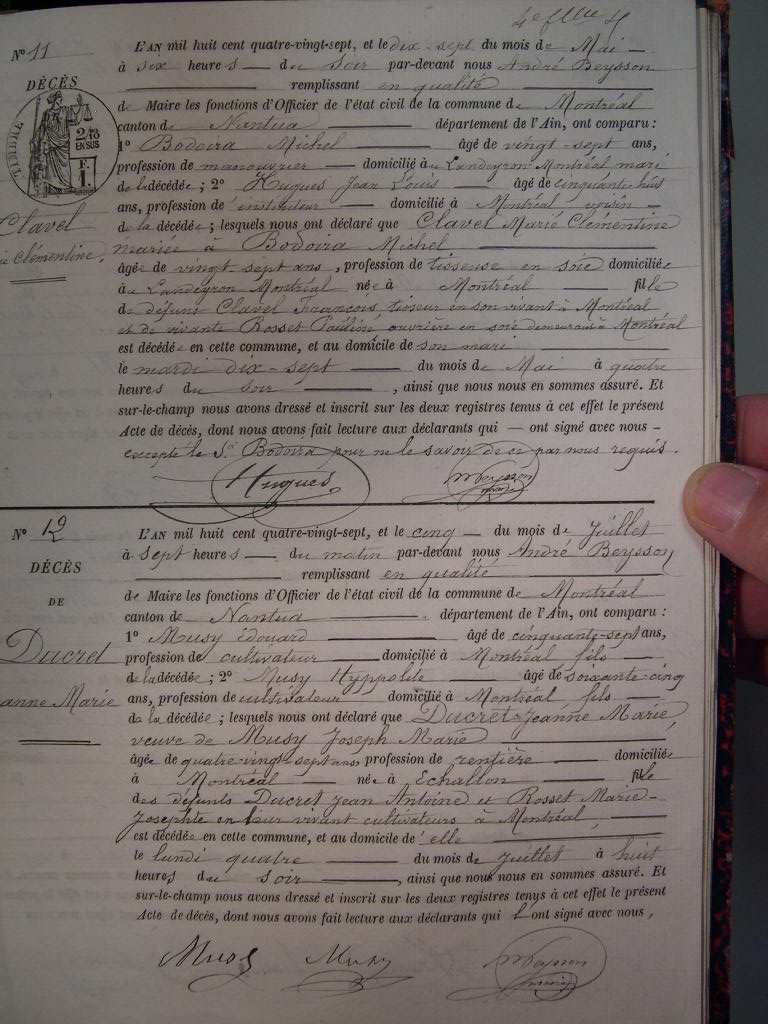 4e flle
No 11
DÉCÈS
TIMBRE
2/10
EN SUS
F.
Clavel
Clémentine,
L'AN mil huit cent quatre-vingt-sept, et le dix-sept du mois de Mai
à six heures du soir par-devant nous André Beysson
remplissant en qualité
de Maire les fonctions d'Officier de l'état civil de la commune de Montréal
canton de Nantua département de l'Ain, ont comparu :
1° Bodoira Michel âgé de vingt-sept ans,
profession de manouvrier domicilié à Landeyron Montréal mari
de la décédée ; 2° Hugues Jean Louis âgé de cinquante huit
ans, profession d'instituteur domicilié à Montréal voisin
de la décédée ; lesquels nous ont déclaré que Clavel Marie Clémentine
mariée à Bodoira Michel
âgée de vingt sept ans, profession de tisseuse en soie domiciliée
à Landeyron Montréal née à Montréal fille
de défunt Clavel François, tisseur en son vivant à Montréal
et de vivante Rosset Pauline ouvrière en soie demeurant à Montréal
est décédée en cette commune, et au domicile de son mari
le mardi dix-sept du mois de Mai à quatre
heures du soir, ainsi que nous nous en sommes assuré. Et
sur-le-champ nous avons dressé et inscrit sur les deux registres tenus à cet effet le présent
Acte de décès, dont nous avons fait lecture aux déclarants qui — ont signé avec nous -
excepté le Sr Bodoira pour ne le savoir de ce par nous requis.
Hugues
No 12
DÉCÈS
DE
Ducret
anne Marie
L'AN mil huit cent quatre-vingt-sept, et le cinq du mois de Juillet
à sept heures du matin par-devant nous André Beysson
remplissant en qualité
de Maire les fonctions d'Officier de l'état civil de la commune de Montréal
canton de Nantua département de l'Ain, ont comparu :
1° Musy édouard âgé de cinquante-sept ans,
profession de cultivateur domicilié à Montréal fils
de la décédée ; 2° Musy Hyppolite âgé de soixante-cinq
ans, profession de cultivateur domicilié à Montréal fils
de la décédée ; lesquels nous ont déclaré que Ducret Jeanne Marie,
veuve de Musy Joseph Marie
âgée de quatre-vingt-sept ans profession de rentière domiciliée
à Montréal née à Echallon fille
des défunts Ducret Jean Antoine et Rosset Marie-
Josephte en leur vivant cultivateurs à Montréal,
est décédée en cette commune, et au domicile d'elle
le lundi quatre du mois de Juillet à huit
heures du soir, ainsi que nous nous en sommes assuré. Et
sur-le-champ nous avons dressé et inscrit sur les deux registres tenus à cet effet le présent
Acte de décès, dont nous avons fait lecture aux déclarants qui l'ont signé avec nous,
Musy Musy